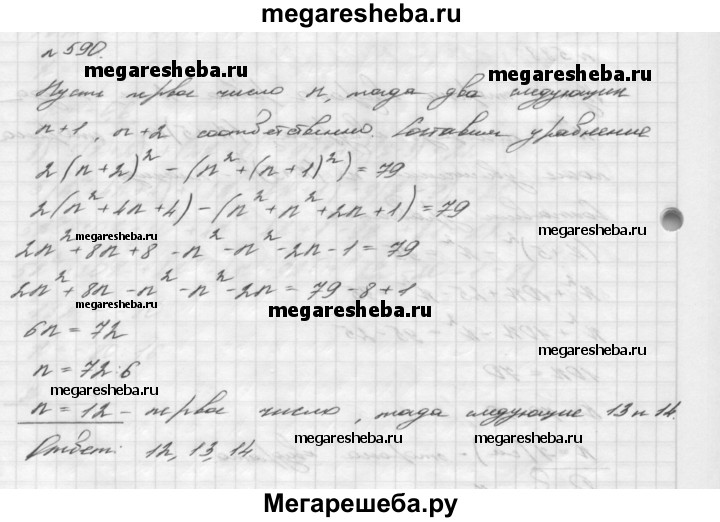 megaresheba.ru
n 590.
megaresheba.ru megaresheba.ru
Пусть первое число n, тогда два следующих
n+1, n+2 соответственно. Составим уравнение
2(n+2)² - (n²+(n+1)²) = 79
2(n²+4n+4) - (n²+n²+2n+1) = 79
megaresheba.ru megaresheba.ru
2n²+8n+8 - n² - n² - 2n - 1 = 79
2n²+8n - n² - n² - 2n = 79 - 8 + 1
megaresheba.ru
6n = 72
megaresheba.ru
n = 72:6
megaresheba.ru
n = 12 - первое число, тогда следующие 13 и 14.
megaresheba.ru megaresheba.ru
Ответ: 12, 13, 14
Мегарешеба.ру